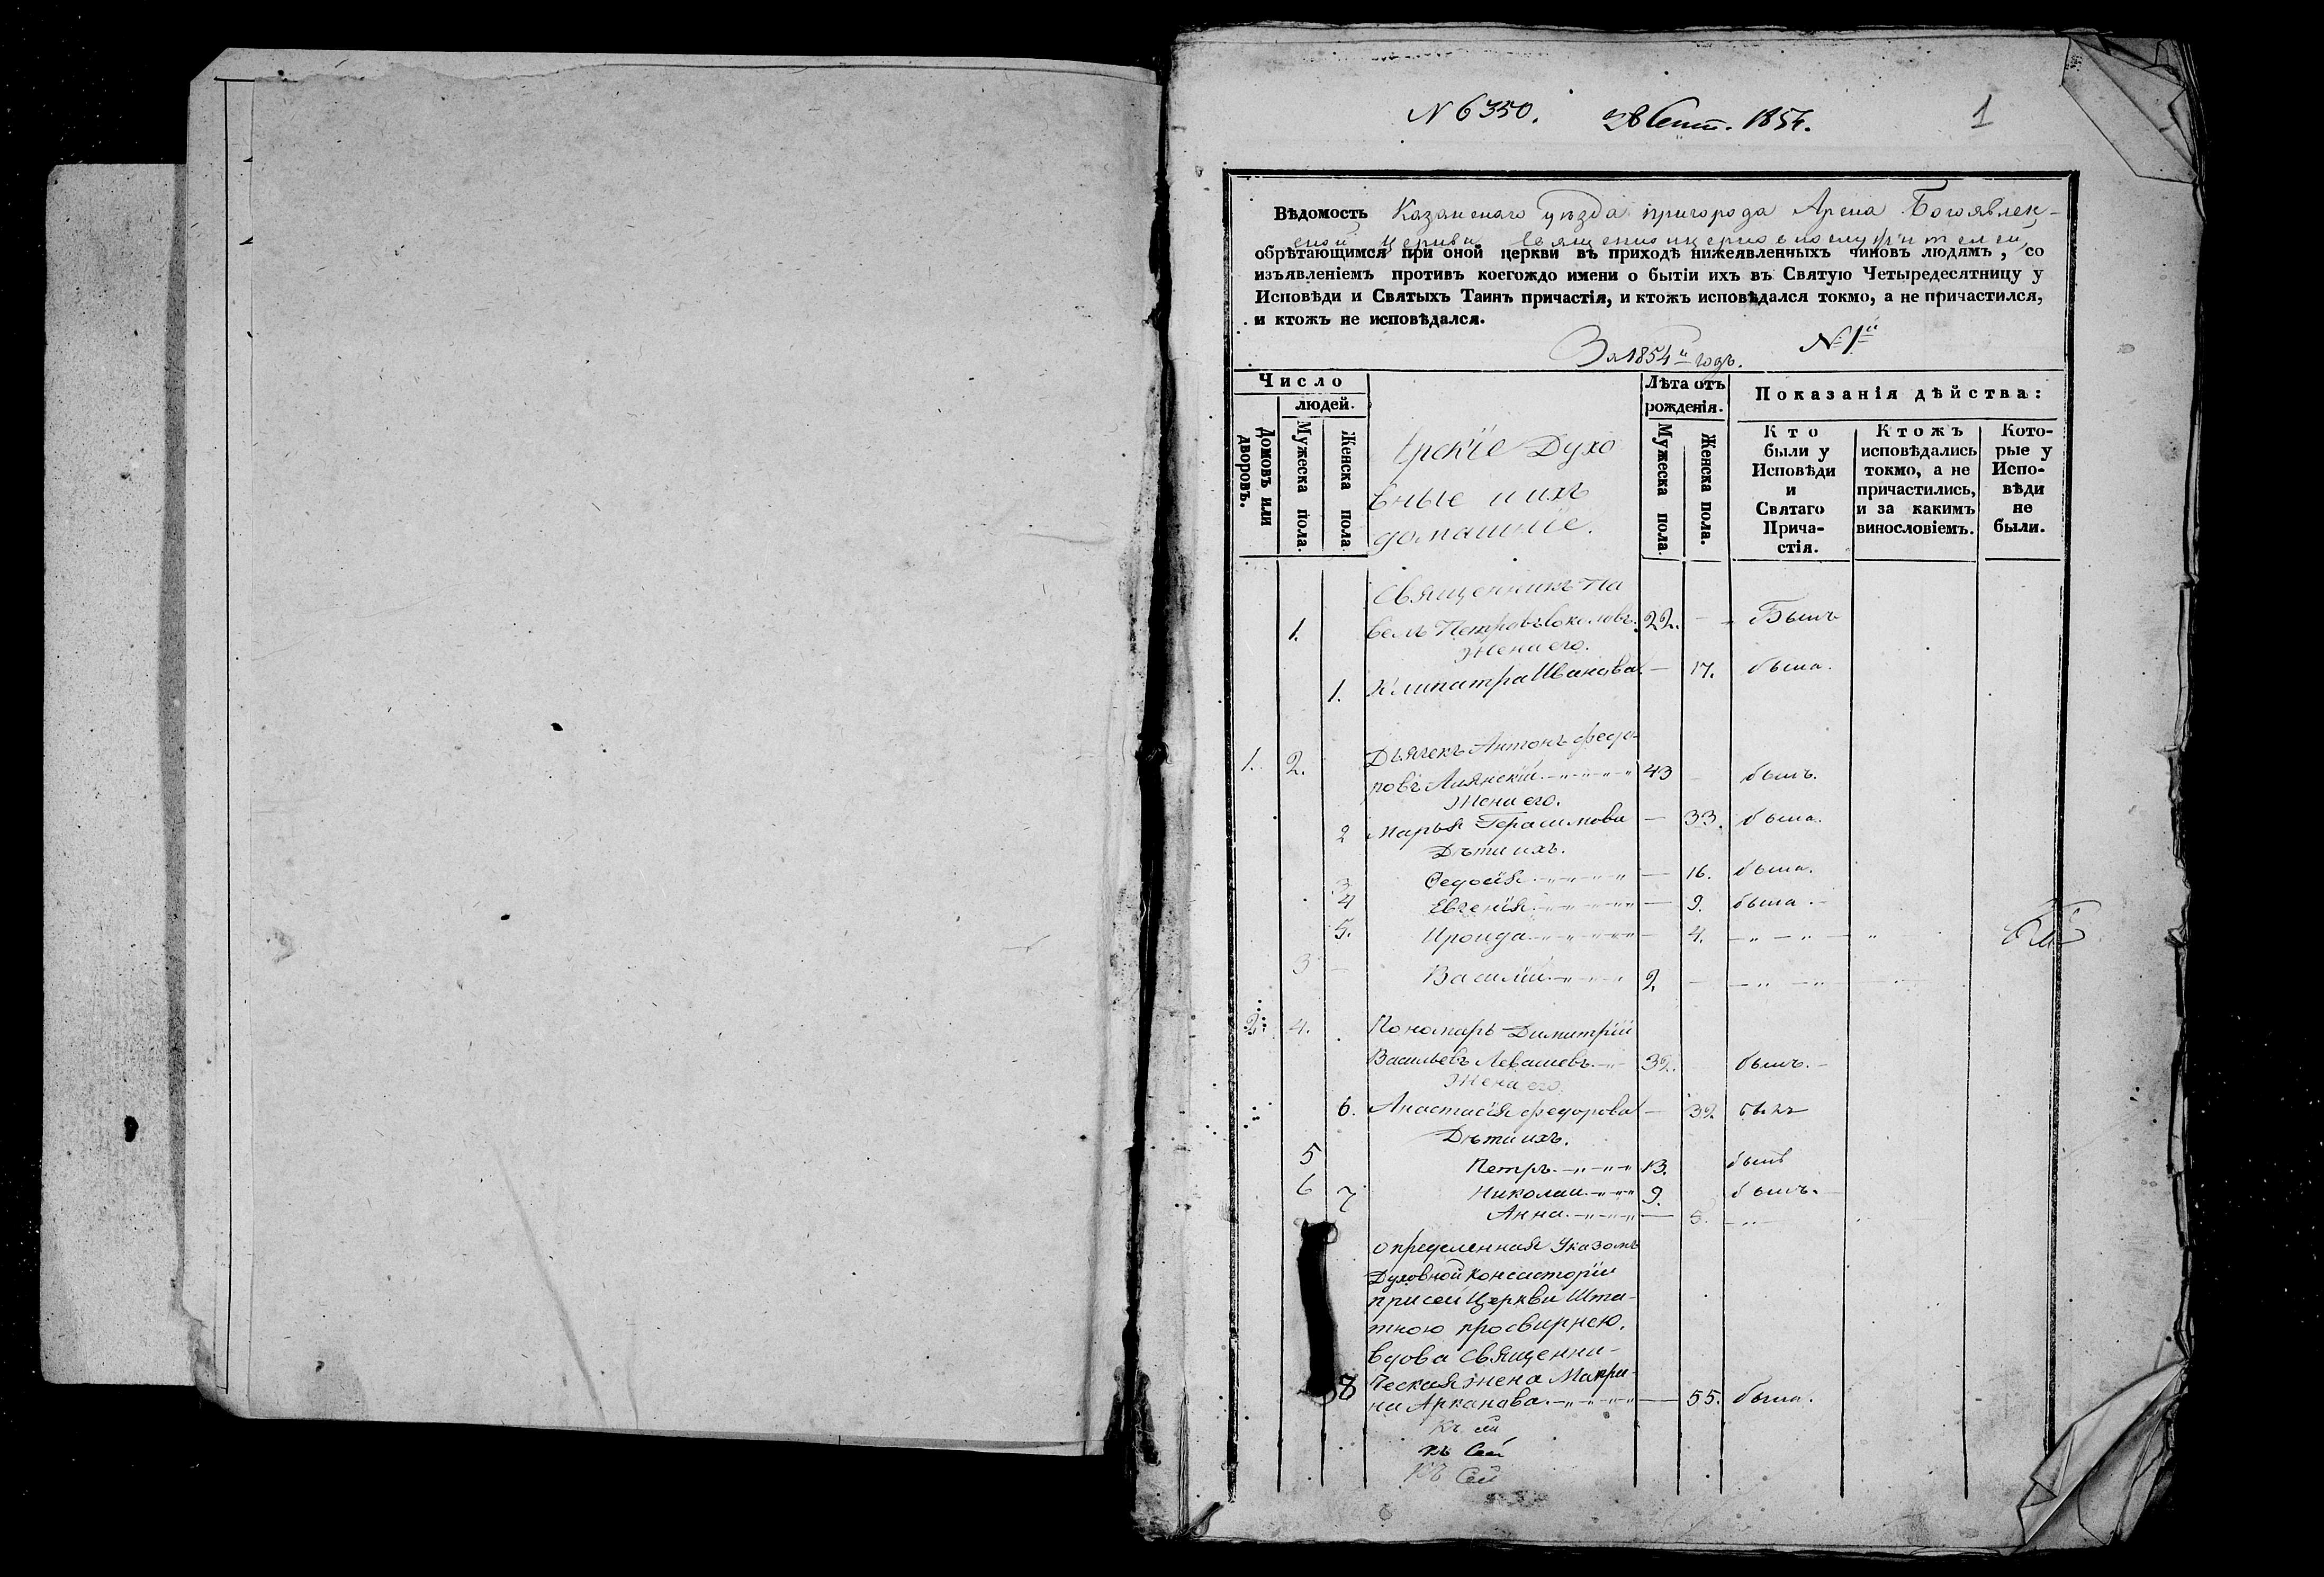 N 6350. 28 Сент. 1854. 1
Вѣдомость Казанскаго уѣзда пригорода Арска Богоявлен-
ской церкви священноцерковнослужителей,
обрѣтающимся при оной церкви въ приходѣ нижеявленныхъ чиновъ людямъ, со
изъявленіемъ противъ коегождо имени о бытіи ихъ въ Святую Четыредесятницу у
Исповѣди и Святыхъ Таинъ причастія, и ктожъ исповѣдался токмо, а не причастился,
и ктожъ не исповѣдался.
За 1854й годъ. № 1й
Число
людей.
Домовъ или дворовъ.
Мужеска пола.
Женска пола
Арскіе Духо
вные и ихъ
домашніе.
Лѣта отъ
рожденія.
Мужеска пола.
Женска пола.
Показанія дѣйства:
Кто
были у
Исповѣди
и
Святаго
Прича-
стія.
Ктожъ
исповѣдались
токмо, а не
причастились,
и за какимъ
винословіемъ.
Кото-
рые у
Испо-
вѣди
не
были.
Священникъ Па
1. велъ Петровъ Соколовъ. 22. — Былъ
Жена его.
1. Клипатра Иванова — 17. была.
Дьячекъ Антонъ Федо-
1. 2. ровъ Лиянскій 43 былъ.
Жена его.
2 Марья Герасимова — 33. была.
Дѣти ихъ.
3 Ѳедосія — 16. была.
4 Евгенія — 9. была.
5. Ироида — 4.
3 Василій 2.
2. 4. Пономарь Димитрій
Васильевъ Левашевъ 32. былъ.
Жена его.
6. Анастасія Федорова — 32
Дѣти ихъ.
5 Петръ 13. былъ
6 Николай 9. былъ.
7 Анна — 5.
Определенная Указомъ
Духовной Консисторіи
при сей Церкви Шта-
тною просвирнею.
вдова священни-
8 ческая жена Макри-
на Арканова — 55. была.
Къ сей
Къ Сей
Къ Сей